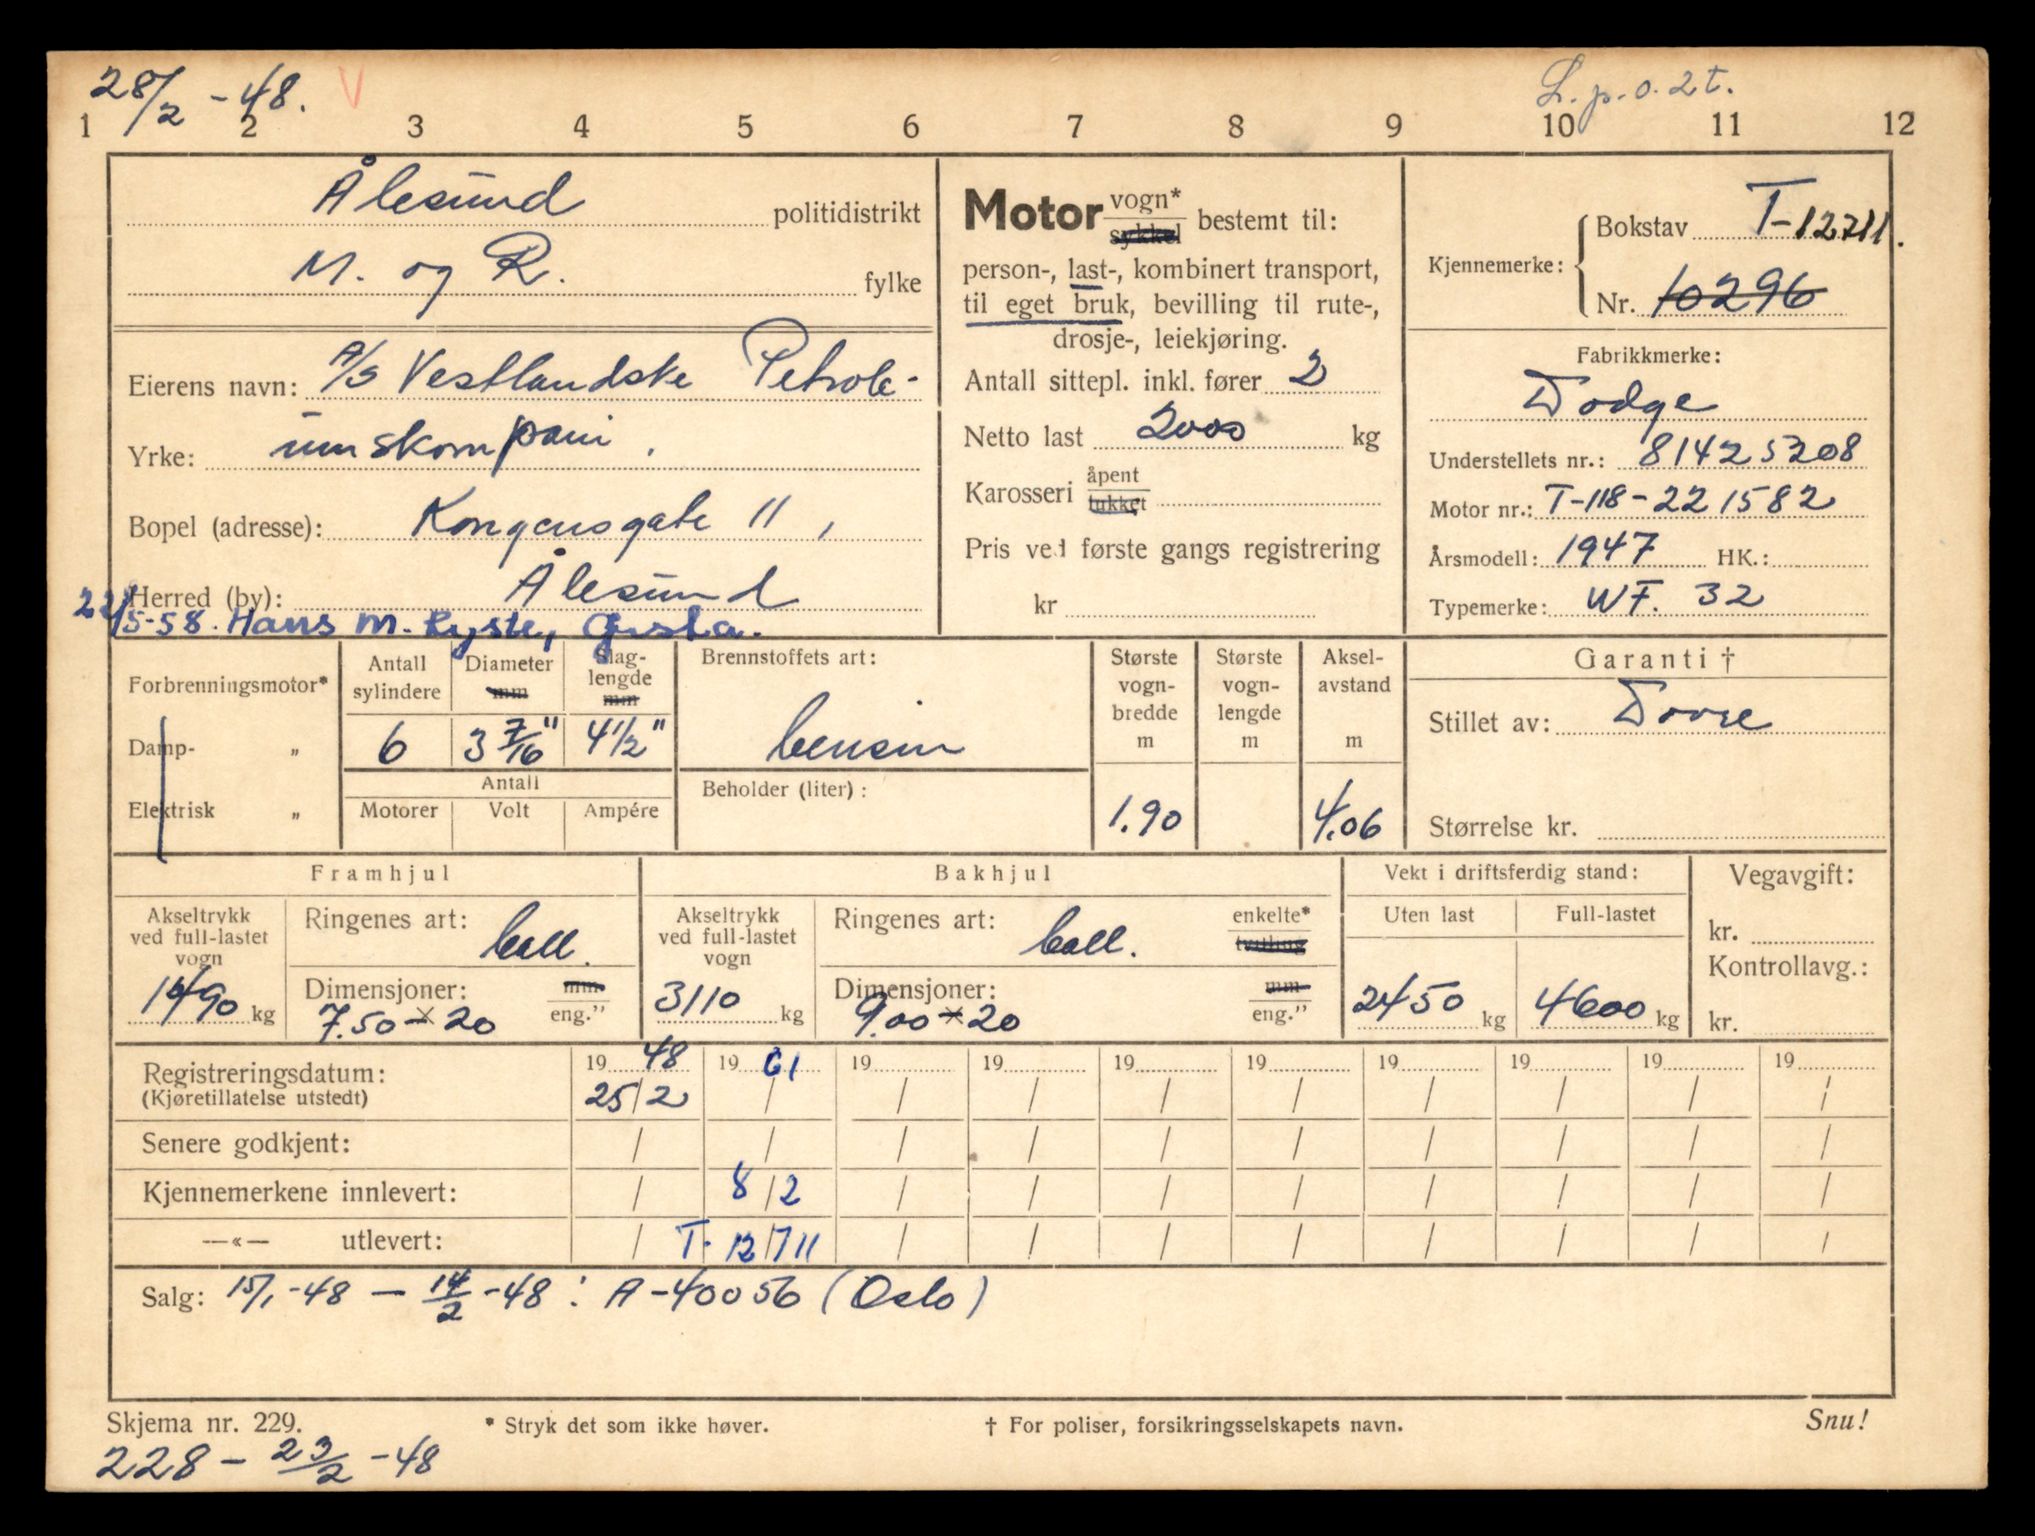 28/2 -48. V
L.p.o.2t.
1 2 3 4 5 6 7 8 9 10 11 12
Ålesund politidistrikt
M. og R. fylke
Eierens navn: A/S Vestlandske Petrole-
Yrke: umskompani.
Bopel (adresse): Kongensgate 11,
Herred (by): Ålesund
22/5-58. Hans M. Ryste, Ørsta.
Motor vogn* sykkel bestemt til:
person-, last-, kombinert transport,
til eget bruk, bevilling til rute-,
drosje-, leiekjøring.
Antall sittepl. inkl. fører 2
Netto last 2000 kg
Karosseri åpent lukket
Pris ved første gangs registrering
kr
Kjennemerke: Bokstav T-12711.
Nr. 10296
Fabrikkmerke:
Dodge
Understellets nr.: 81425208
Motor nr.: T-118-221582
Årsmodell: 1947 HK.:
Typemerke: WF. 32
Forbrenningsmotor*
Damp- „
Elektrisk „
Antall sylindere
Diameter mm
Slag-lengde mm
6 3 7/16" 4 1/2"
Antall
Motorer Volt Ampére
Brennstoffets art:
bensin
Beholder (liter):
Største vogn-bredde m
1.90
Største vogn-lengde m
Aksel-avstand m
4.06
Garanti †
Stillet av: Dovre
Størrelse kr.
Framhjul
Akseltrykk ved full-lastet vogn
1490 kg
Ringenes art: ball.
Dimensjoner: mm eng."
7.50 x 20
Bakhjul
Akseltrykk ved full-lastet vogn
3110 kg
Ringenes art: ball. enkelte* tvilling
Dimensjoner: mm eng."
9.00 x 20
Vekt i driftsferdig stand:
Uten last Full-lastet
2450 kg 4600 kg
Vegavgift:
kr.
Kontrollavg.:
kr.
Registreringsdatum: 19 48 19 61 19 19 19 19 19 19 19 19
(Kjøretillatelse utstedt) 25/2 / / / / / / / / /
Senere godkjent: / / / / / / / / / /
Kjennemerkene innlevert: / 8/2 / / / / / / / /
—«— utlevert: / T-12711 / / / / / / / /
Salg: 15/1-48 — 14/2-48: A-40056 (Oslo)
Skjema nr. 229. * Stryk det som ikke høver. † For poliser, forsikringsselskapets navn. Snu!
228 - 23/2 -48